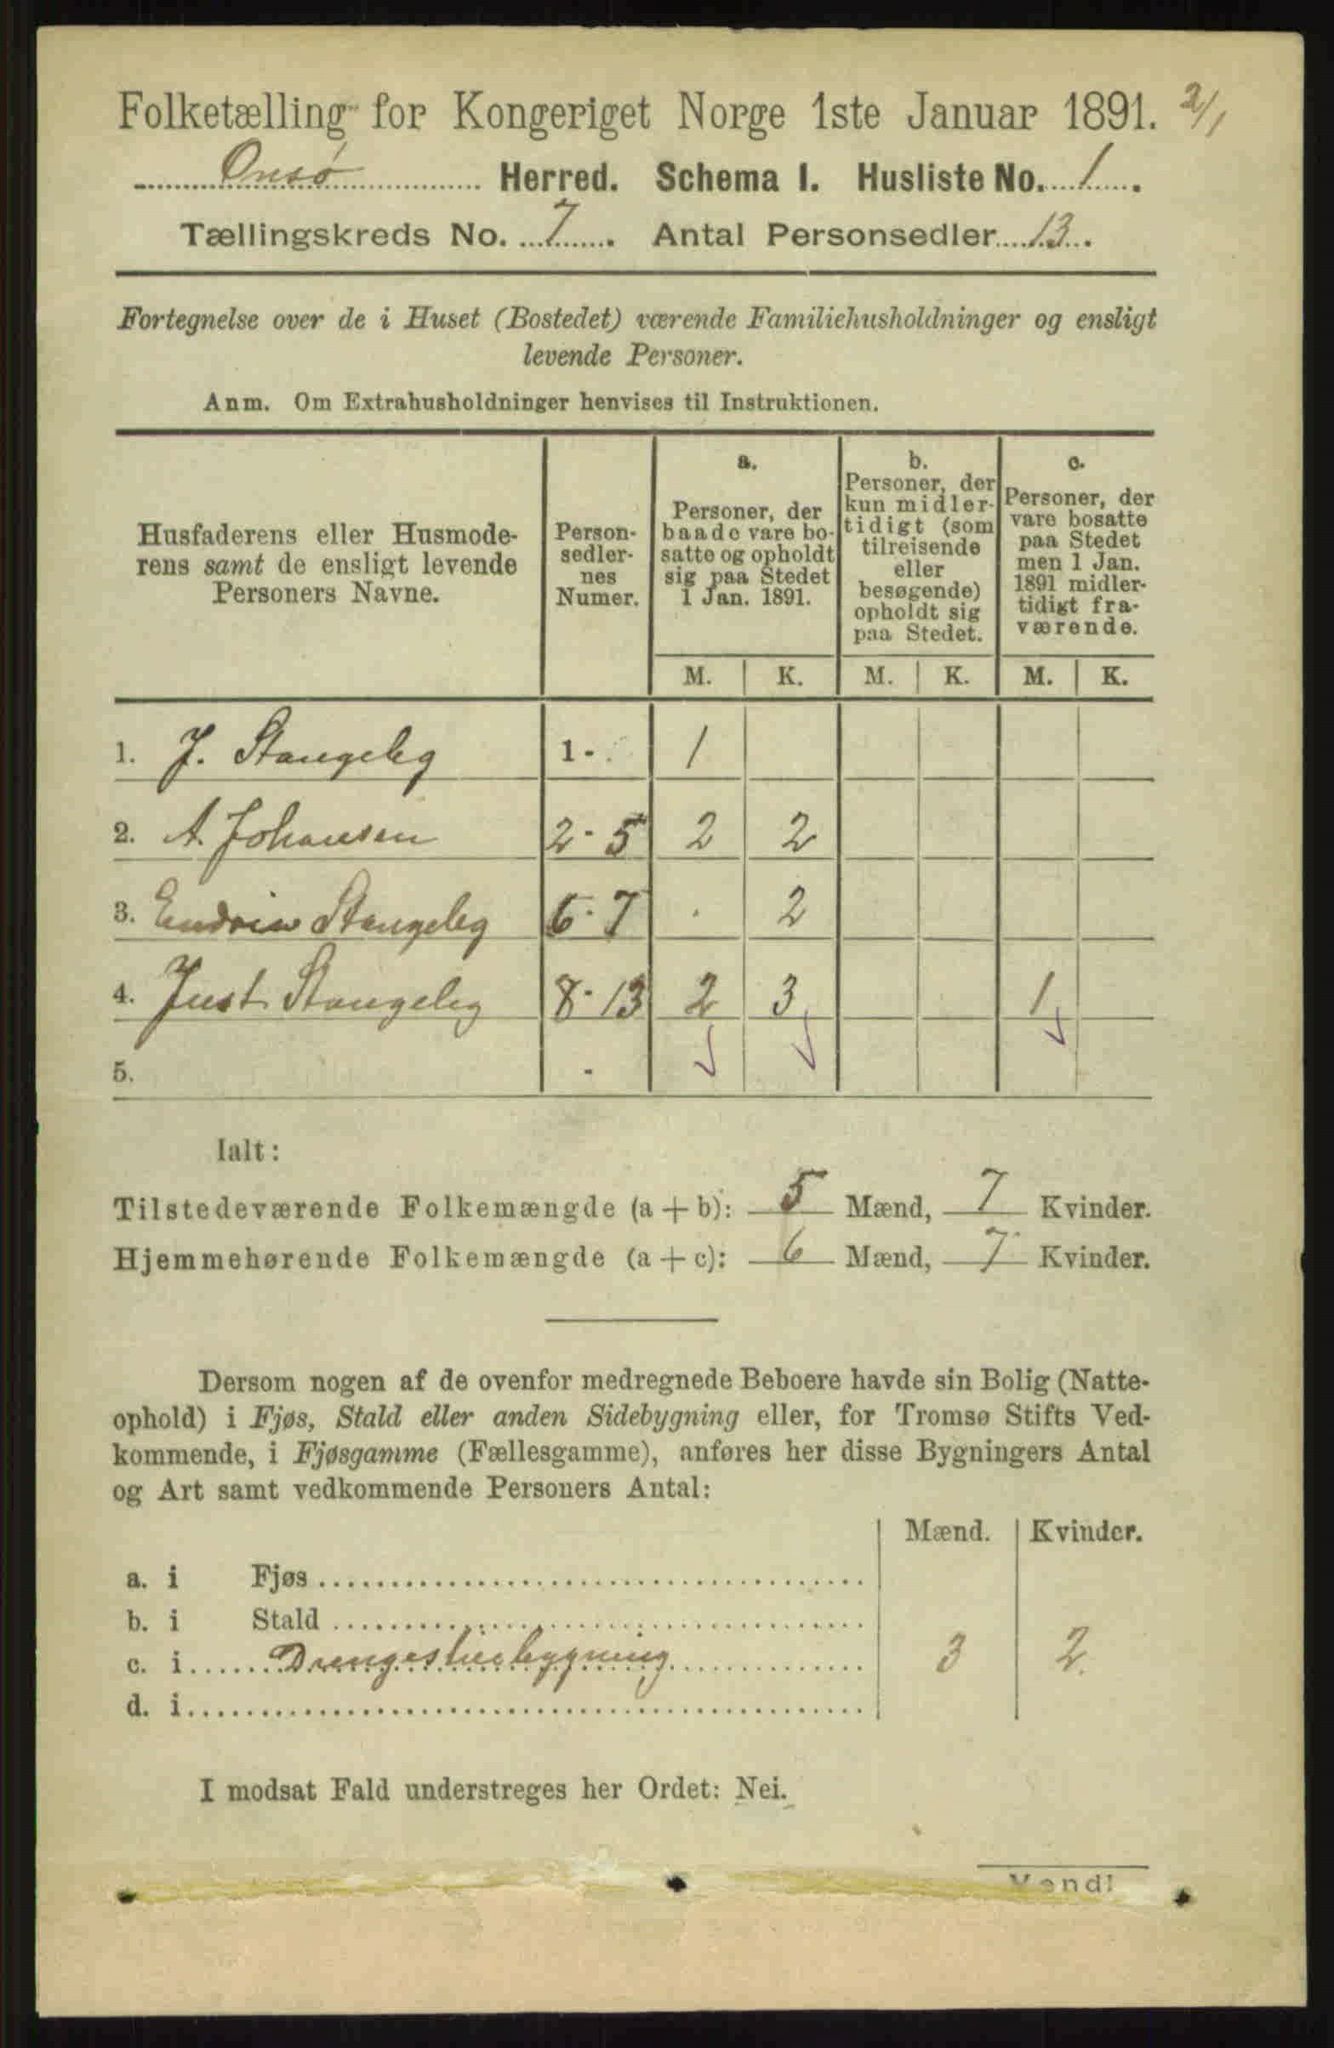 Folketælling for Kongeriget Norge 1ste Januar 1891. 2/1
Onsø Herred. Schema I. Husliste No. 1.
Tællingskreds No. 7. Antal Personsedler 13.
Fortegnelse over de i Huset (Bostedet) værende Familiehusholdninger og ensligt
levende Personer.
Anm. Om Extrahusholdninger henvises til Instruktionen.
Husfaderens eller Husmode-
rens samt de ensligt levende
Personers Navne.
Person-
sedler-
nes
Numer.
a.
Personer, der
baade vare bo-
satte og opholdt
sig paa Stedet
1 Jan. 1891.
b.
Personer, der
kun midler-
tidigt (som
tilreisende
eller
besøgende)
opholdt sig
paa Stedet.
c.
Personer, der
vare bosatte
paa Stedet
men 1 Jan.
1891 midler-
tidigt fra-
værende.
M. K. M. K. M. K.
1. J. Stangebeg 1 - 1
2. A. Johansen 2 - 5 2 2
3. Stangebeg 6 - 7 . 2
4. Just Stangebeg 8 - 13 2 3 1
5. -
Ialt:
Tilstedeværende Folkemængde (a + b): 5 Mænd, 7 Kvinder.
Hjemmehørende Folkemængde (a + c): 6 Mænd, 7 Kvinder.
Dersom nogen af de ovenfor medregnede Beboere havde sin Bolig (Natte-
ophold) i Fjøs, Stald eller anden Sidebygning eller, for Tromsø Stifts Ved-
kommende, i Fjøsgamme (Fællesgamme), anføres her disse Bygningers Antal
og Art samt vedkommende Personers Antal:
Mænd. Kvinder.
a. i Fjøs
b. i Stald
c. i Drengestuebygning 3 2
d. i
I modsat Fald understreges her Ordet: Nei.
Vend!